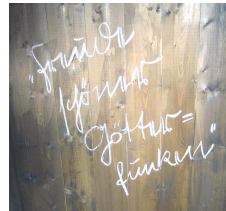 „Freude
schöner
Götter=
funken"